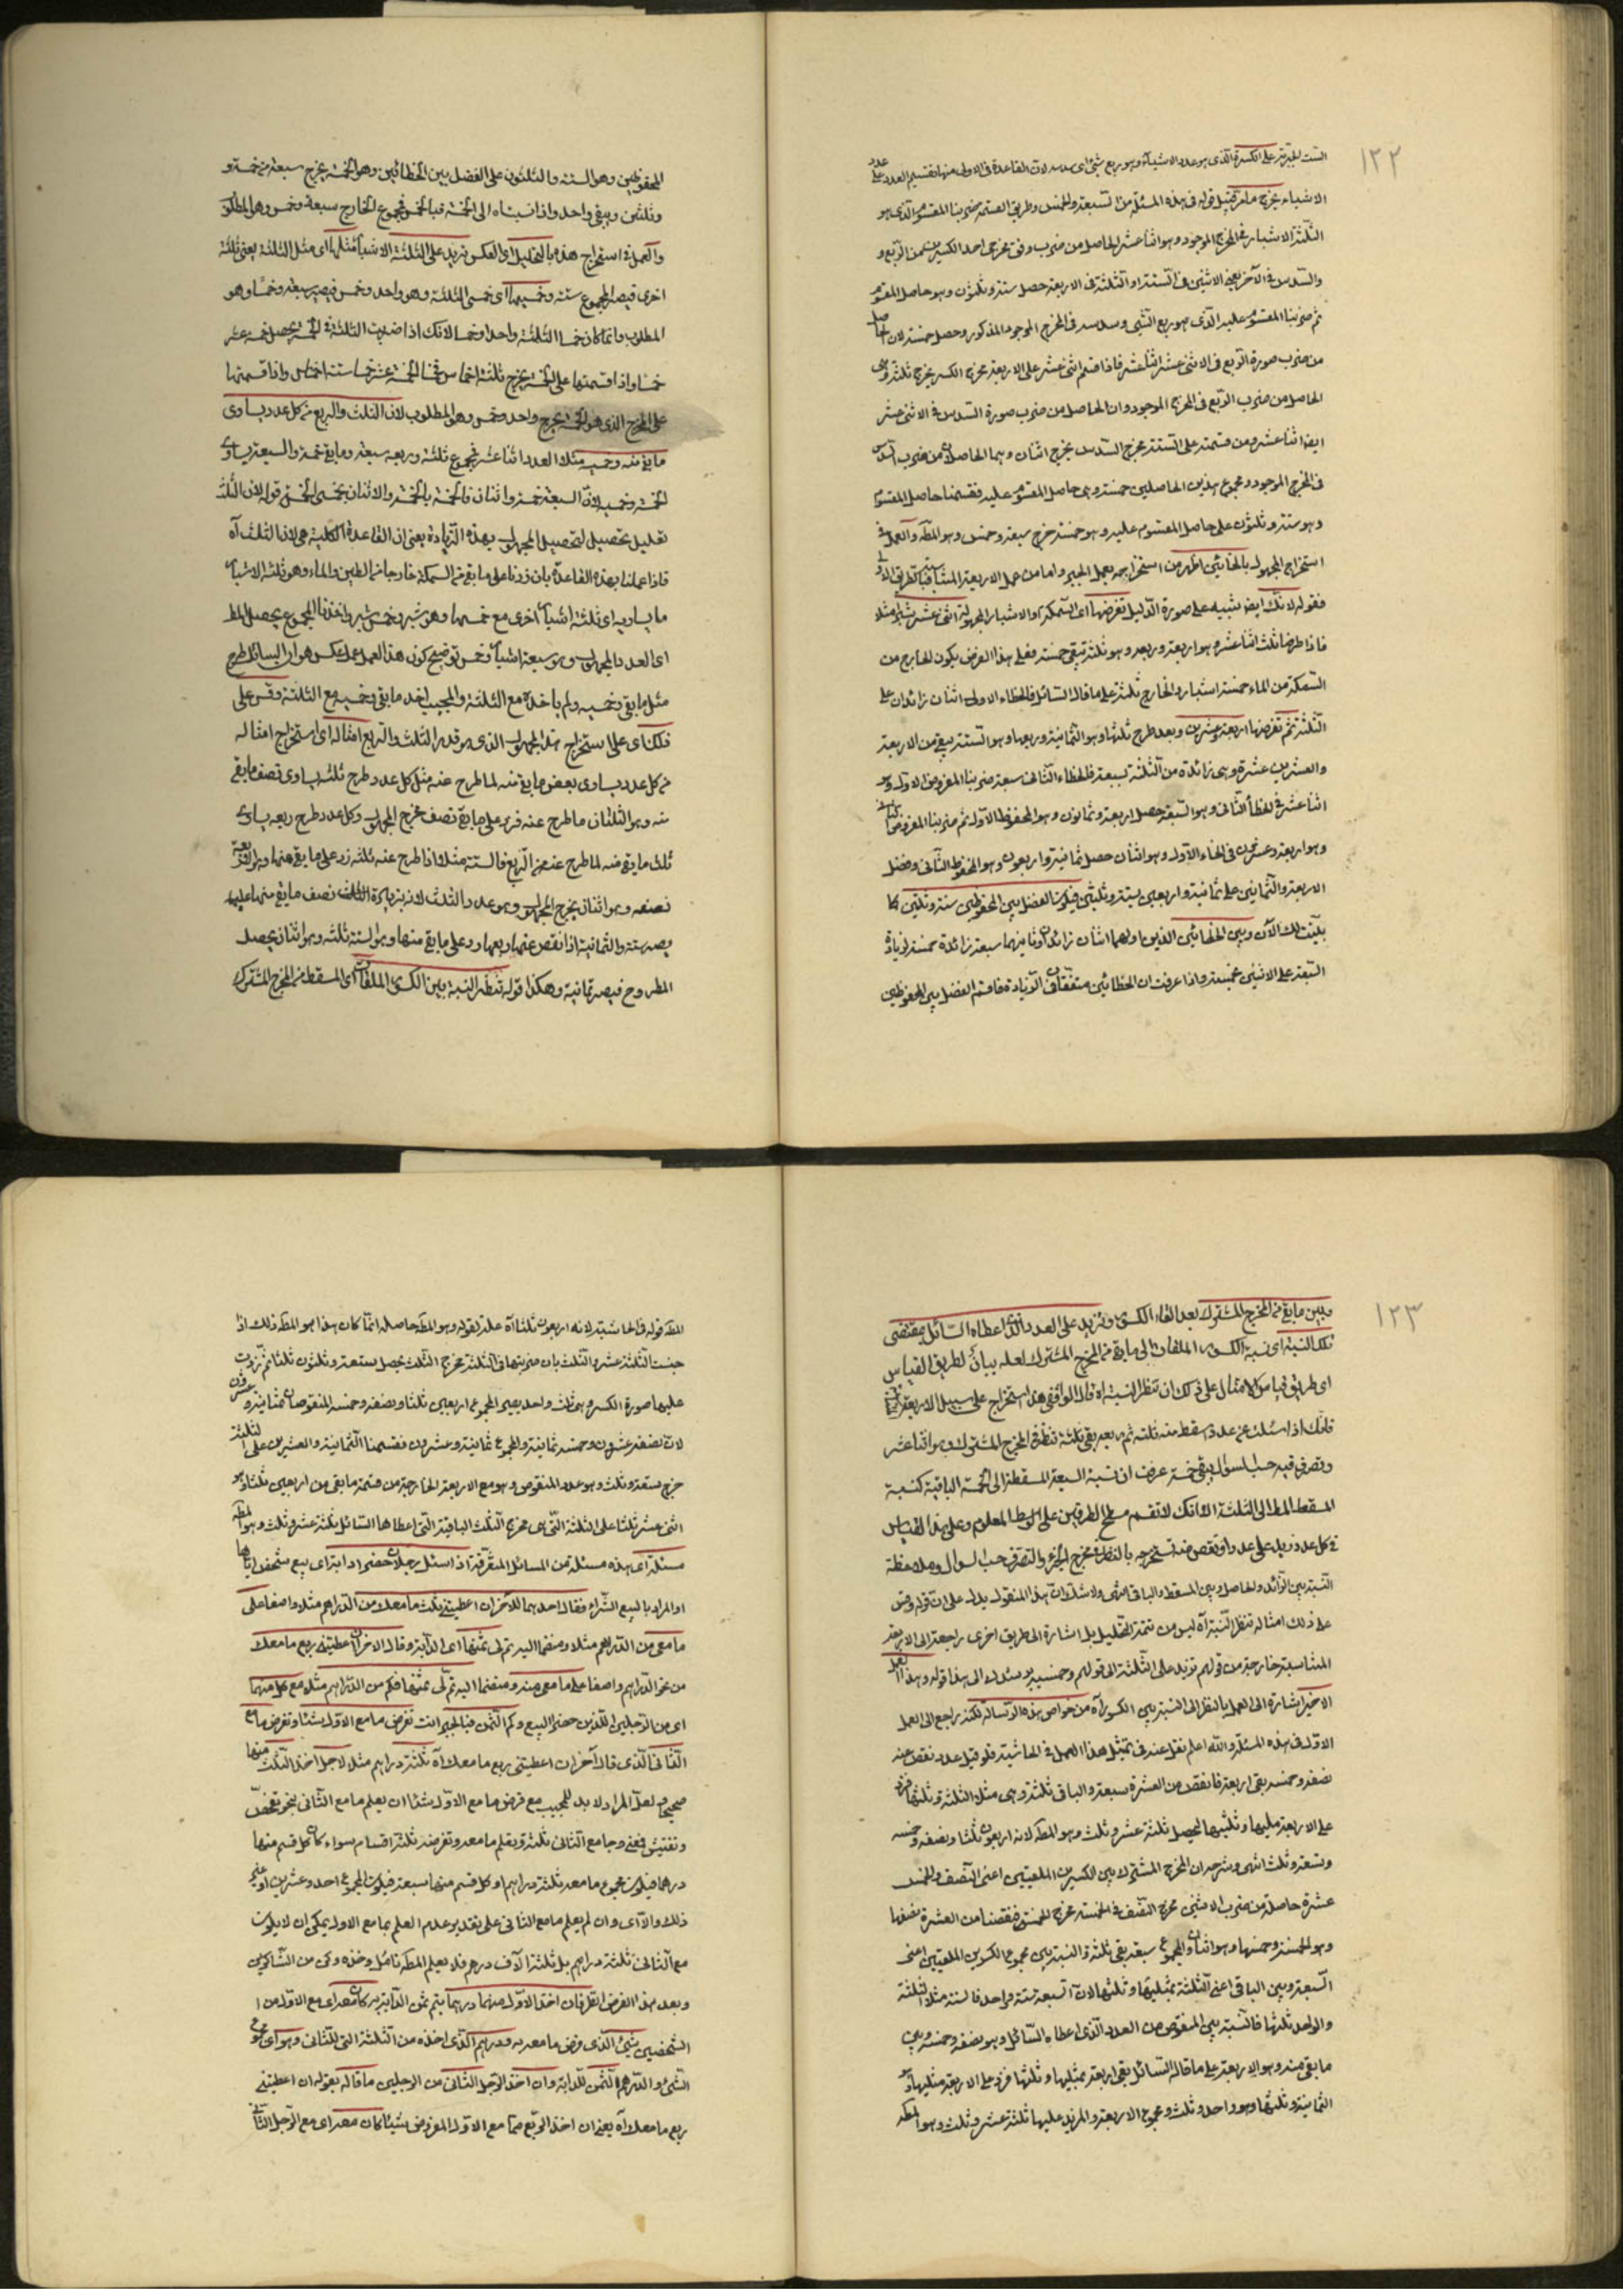 ١٢٢
الاشياء يخرج مامر قبيل قوله فى هذه المسئلة من السبعة والخمس وطريق القسمة ضربنا المقسوم الذى هو
الثلثة الاشبار فى المخرج الموجود وهو اثنا عشر الحاصل من ضرب وفق مخرجى احد الكسرين من الربع و
والسدس فى الآخر يعنى الاثنين فى الستة او الثلثة فى الاربعة حصل ستة وثلثون وهو حاصل المقسوم
ثم ضربنا المقسوم عليه الذى هو ربع الشئ وسدسه فى المخرج الموجود المذكور وحصل خمسة لان الحاصل
من ضرب صورة الربع فى الاثنى عشر اثنا عشر فاذا قسم اثنى عشر على الاربعة مخرج الكسر يخرج ثلثة وهى
الحاصل من ضرب الربع فى المخرج الموجود وان الحاصل من ضرب صورة السدس فى الاثنى عشر
ايضا اثنا عشر ومن قسمته على الستة مخرج السدس يخرج اثنان وهما الحاصلان من ضرب السدس
فى المخرج الموجود ومجموع هذين الحاصلين خمسة وهى حاصل المقسوم عليه فقسمنا حاصل المقسوم
وهو ستة وثلثون على حاصل المقسوم عليه وهو خمسة خرج سبعة وخمس وهو المط والعمل فى
استخراج المجهول بالخطائين اظهر من استخراجه بعمل الجبر واما من عمل الاربعة المتناسبة فبالطريق الاولى
فقوله لانك ايضا تنبيه على صورة الدليل تفرضها اى السمكة او الاشبار المجهولة اثنى عشر شبرا مثلا
فاذا طرحنا ثلث اثنا عشر وهو اربعة وربعه وهو ثلثة تبقى خمسة فعلى هذا الفرض يكون الخارج من
السمكة من الماء خمسة اشبار والخارج ثلثة على ما قاله السائل فالخطاء الاول اثنان زائدان على
الثلثة ثم تفرضها اربعة وعشرين وبعد طرح ثلثها وهو الثمانية وربعها وهو الستة يبقى من الاربعة
والعشرين عشرة وهى زائدة من الثلثة بسبعة فالخطاء الثانى سبعة ضربنا المفروض الاول وهو
اثنا عشر فى الخطأ الثانى وهو السبعة حصل اربعة وثمانون وهو المحفوظ الاول ثم ضربنا المفروض الثانى
وهو اربعة وعشرون فى الخطاء الاول وهو اثنان حصل ثمانية واربعون وهو المحفوظ الثانى وفضل
الاربعة والثمانين على ثمانية واربعين بستة وثلثين فيكون الفضل بين المحفوظين ستة وثلثين كما
بينت لك الآن وبين الخطائين الذين اولهما اثنان زائدان وثانيهما سبعة زائدة خمسة لزيادة
السبعة على الاثنين بخمسة واذا عرفت ان الخطائين متفقان فى الزيادة فاقسم الفضل بين المحفوظين
المحفوظين وهو الستة والثلثون على الفضل بين الخطائين وهو الخمسة يخرج سبعة من خمسة و
وثلثين ويبقى واحد واذا نسبناه الى الخمسة فبالخمس فمجموع الخارج سبعة وخمس وهو المطلوب
والعمل فى استخراج هذه بالتحليل اى العكس تزيد على الثلثة الاشبار مثلها اى مثل الثلثة يعنى ثلثة
اخرى فيصير المجموع ستة وخمسيها اى خمسى الثلثة وهو واحد وخمس فيصير سبعة وخمسا وهو
المطلوب وانما كان خمسا الثلثة واحدا وخمسا لانك اذا ضربت الثلثة فى الخمسة يحصل خمسة عشر
خمسا واذا قسمتها على الخمسة يخرج ثلثة اخماس فخمسا الخمسة عشر خمسا ستة اخماس واذا قسمتها
على المخرج الذى هو الخمسة يخرج واحد وخمس وهو المطلوب لان الثلث والربع من كل عدد يساوى
ما بقى منه وخمسيه مثلا العدد اثنا عشر فمجموع ثلثه وربعه سبعة وما بقى خمسة والسبعة يساوى
الخمسة وخمسيه لان السبعة خمسة واثنان فالخمسة بالخمسة والاثنان بخمسى الخمسة قوله لان الثلث
تعليل تحصيل المجهول بهذه الزيادة يعنى ان القاعدة الكلية هى لان الثلث آه
فاذا عملنا بهذه القاعدة بان زدنا على ما بقى من السمكة خارجا من الطين والماء وهو ثلثة الاشبار
ما يساويه اى ثلثة اشبار اخرى مع خمسيها وهو شبر وخمس شبر واخذنا المجموع يحصل المط
اى العدد المجهول وهو سبعة اشبار وخمس توضيح كون هذا العمل عمل عكس هو ان السائل طرح
مثل ما بقى وخمسيه ولم ياخذه مع الثلثة والمجيب اخذ ما بقى وخمسيه مع الثلثة وقس على
ذلك اى على استخراج هذا المجهول الذى هو قدر الثلث والربع امثاله اى استخراج امثاله
من كل عدد يساوى بعض ما بقى منه لما طرح عنه مثل كل عدد طرح ثلثه يساوى نصف ما بقى
منه وهو الثلثان ما طرح عنه فزد على ما بقى نصف مخرج المجهول وكل عدد طرح ربعه يساوى
ثلث ما بقى منه لما طرح عنه من الربع فالستة مثلا اذا طرح عنه ثلثه زد على ما بقى منها وهو الاربعة
نصفه وهو اثنان يخرج المجهول وهو عدد الثلث لان بزيادة الثلث نصف ما بقى منها عليها
يصير ستة والثمانية اذا نقص عنها ربعها زد على ما بقى منها وهو الستة ثلثه وهو اثنان يحصل
المطروح فيصير ثمانية وهكذا قوله تنظر النسبة بين الكسور الملقات اى المسقطة من المخرج المشترك
١٢٣
وبين ما بقى من المخرج المشترك بعد القاء الكسور وتزيد على العدد الذى اعطاه السائل بمقتضى
تلك النسبة اى نسبة الكسور الملقات الى ما بقى من المخرج المشترك لعله بيان لطريق القياس
فانك اذا سئلت عن عدد يسقط منه ثلثه ثم ربعه بقى ثلثة تنظر فى المخرج المشترك وهو اثنا عشر
وتصرف فيه حسب السؤال يبقى خمسة عرفت ان نسبة السبعة المسقطة الى الخمسة الباقية كنسبة
المسقط المط الى الثلثة الا انك لا تقسم مسطح الطرفين على الوسط المعلوم وعلى هذا القياس
فى كل عدد زيد على عدد او نقص منه تستخرجه بالنظر فى مخرج الجزء والتصرف حسب السوال وملاحظة
النسبة بين الزائد والحاصل وبين المسقط والباقى انتهى ولا شك ان هذا المنقول يدل على ان قوله وقس
على ذلك امثاله تنظر النسبة آه ليس من تتمة التحليل بل اشارة الى طريق اخرى راجعة الى الاربعة
الاخير اشارة الى العمل بالنظر الى النسبة بين الكسور آه من خواص هذه الرسالة لكنه راجع الى العمل
الاول فى هذه المسئلة والله اعلم نقل عنه فى تمثيل هذا العمل فى الحاشية فلو قيل عدد نقص عنه
نصفه وخمسه بقى اربعة فانقص من العشرة سبعة والباقى ثلثة وهى مثلا الثلثة وثلثها فزد
على الاربعة مثليها وثلثها يحصل ثلثة عشر وثلث وهو المط لانه اربعون ثلثا ونصفه وخمسه
وتسعة وثلث انتهى وشرحه ان المخرج المشترك بين الكسرين الملقيين اعنى النصف والخمس
عشرة حاصلة من ضرب الاثنين مخرج النصف فى الخمسة مخرج الخمس فنقصنا من العشرة نصفها
وهو الخمسة وخمسها وهو اثنان والمجموع سبعة بقى ثلثة والنسبة بين مجموع الكسرين الملقيين اعنى
السبعة وبين الباقى اعنى الثلثة بمثليها وثلثها لان السبعة ستة وواحد فالستة مثلا الثلثة
والواحد ثلثها فالنسبة بين المنقوص من العدد الذى اعطاه السائل وهو نصفه وخمسه وبين
ما بقى منه وهو الاربعة على ما قاله السائل بقى اربعة بمثليها وثلثها فزد على الاربعة مثليها وهو
الثمانية وثلثها وهو واحد وثلث ومجموع الاربعة والمزيد عليها ثلثة عشر وثلث وهو المط
المط قوله فى الحاشية لانه اربعون ثلثا آه علة لقوله وهو المط حاصله انما كان هذا هو المط ذلك اذا
جنست الثلثة عشر والثلث بان ضربتها فى الثلثة مخرج الثلث حصل تسعة وثلثون ثلثا ثم زدت
عليها صورة الكسر وهى ثلث واحد يصير المجموع اربعين ثلثا ونصفه وخمسه المنقوصان ثمانية وعشرون
لان نصفه عشرون وخمسه ثمانية والمجموع ثمانية وعشرون فقسمنا الثمانية والعشرين على الثلثة
خرج تسعة وثلث وهو عدد المنقوص وهو مع الاربعة الخارجة من قسمة ما بقى من اربعين ثلثا وهو
اثنى عشر ثلثا على الثلثة التى هى مخرج الثلث الباقية التى اعطاها السائل ثلثة عشر وثلث وهو المط
مسئلة اى هذه مسئلة من المسائل المتفرقة اذا سئل رجلان حضرا دابة اى بيع شخص اياها
او المراد بالبيع الشراء فقال احدهما للآخر ان اعطيتنى ثلث ما معك من الدراهم مثلا واضفها على
ما معى من الدراهم مثلا ومنضما اليه تم لى ثمنها اى الدابة وقال الاخر ان اعطيتنى ربع ما معك
من نحو الدراهم واضفها على ما معى منه ومنضما اليه تم لى ثمنها فكم من الدراهم مثلا مع كل منهما
اى من الرجلين اللذين حضرا البيع وكم الثمن فبالجبر انت تفرض ما مع الاول شيئا وتفرض ما مع
الثانى الذى قال آخر ان اعطيتنى ربع ما معك آه ثلثة دراهم مثلا لاجل اخذ الثلث منها
صحيحا ولعل المراد لا بد للمجيب مع فرض ما مع الاول شيئا ان يعلم ما مع الثانى بنحو تفحص
وتفتيش فعنى وجا مع الثانى ثلثة ويعلم ما معه وتفرضه ثلثة اقسام سواء كان كل قسم منها
درهما فيكون مجموع ما معه ثلثة دراهم او كل قسم منها سبعة فيكون المجموع احد وعشرين او غير
ذلك والا اى وان لم يعلم ما مع الثانى على تقدير عدم العلم بما مع الاول يمكن ان لا يكون
مع الثانى ثلثة دراهم بل ثلثة آلاف درهم فلا يعلم المط تامل وخذه وكن من الشاكرين
وبعد هذا الفرض انظر فان اخذ الاول منهما درهما يتم ثمن الدابة به كان معه اى مع الاول من
الشخصين شئ الذى فرض ما معه به ودرهم الذى اخذه من الثلثة التى للثانى وهو اى مجموع
الشئ والدرهم الثمن للدابة وان اخذ الرجل الثانى من الرجلين ما قاله بقوله ان اعطيتنى
ربع ما معك آه يعنى ان اخذ الربع مما مع الاول المفروض شيئا كان معه اى مع الرجل الثانى